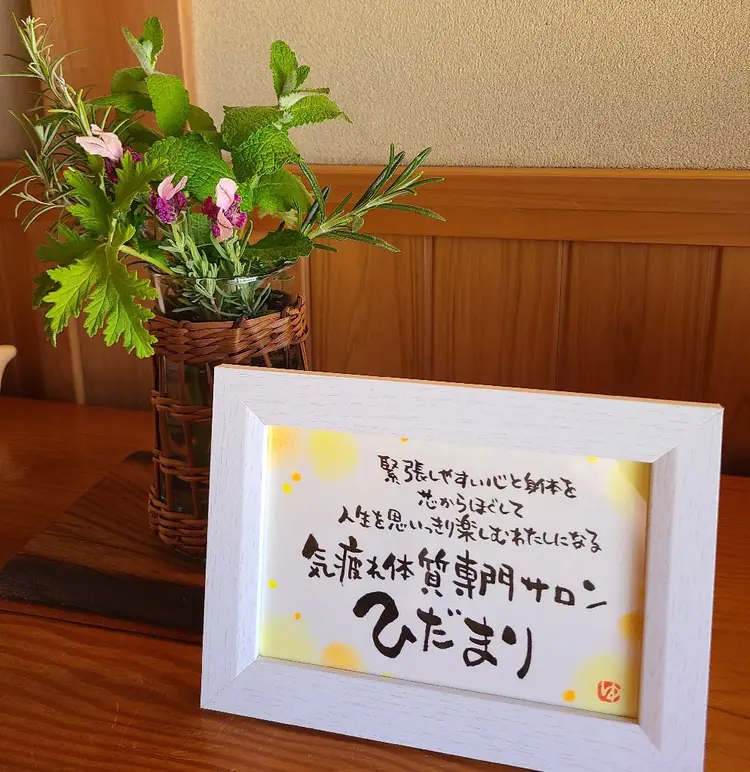 緊張しやすい心と身体を
芯からほぐして
人生を思いっきり楽しむわたしになる
気疲れ体質専門サロン
ひだまり